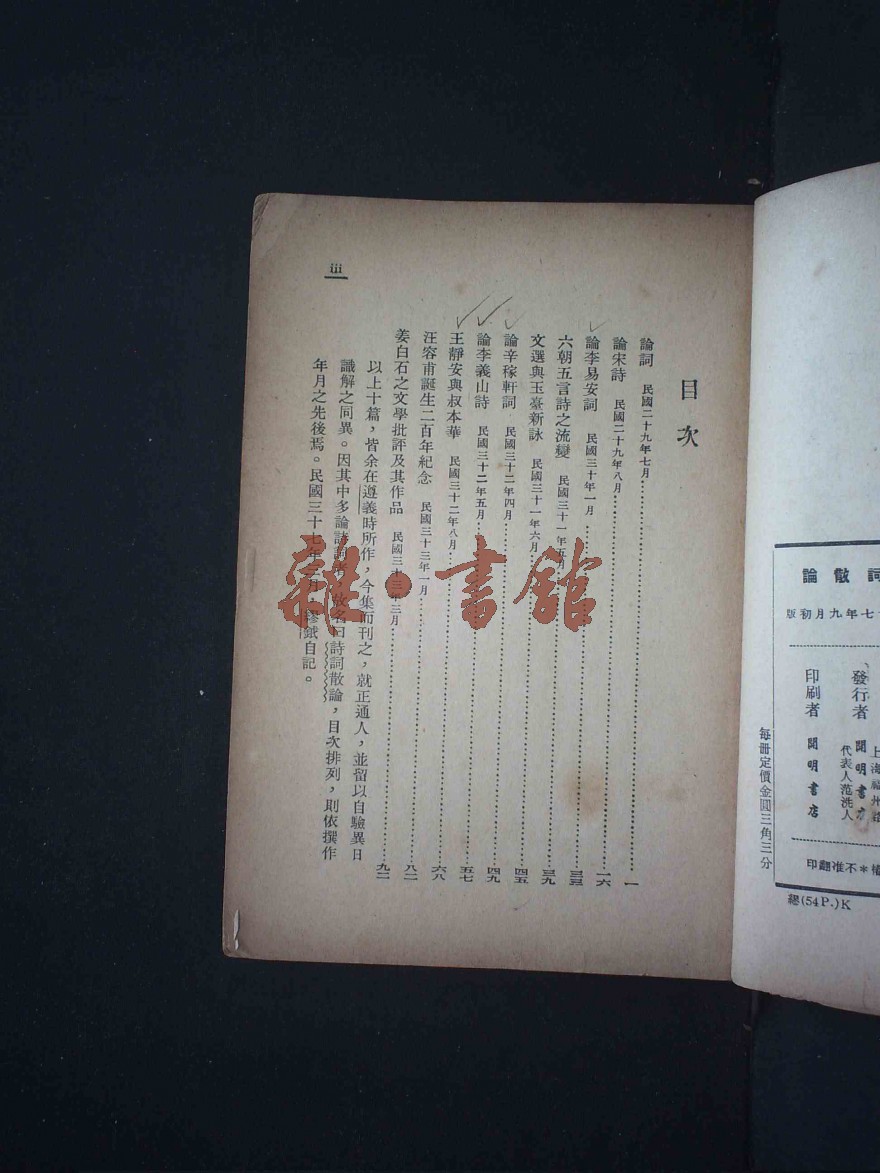 目次
論詞 民國二十九年七月 一
論宋詩 民國二十九年八月 一六
論李易安詞 民國三十年一月 三三
六朝五言詩之流變 民國三十一年五月 三九
文選與玉臺新詠 民國三十一年六月 四五
論辛稼軒詞 民國三十二年四月 四九
論李義山詩 民國三十二年五月 五七
王靜安與叔本華 民國三十二年八月 六八
汪容甫誕生二百年紀念 民國三十三年一月 八二
姜白石之文學批評及其作品 民國三十三年三月 九二
以上十篇，皆余在遵義時所作，今集而刊之，就正通人，並留以自驗異日
識解之同異。因其中多論詩詞者，故名曰詩詞散論，目次排列，則依撰作
年月之先後焉。民國三十七年月，繆鉞自記。
iii
雜·書館
詞散論
七年九月初版
上海福州路
發行者 開明書店
代表人范洗人
印刷者 開明書店
＊不准翻印
每冊定價金圓三角三分
繆(54P.)K